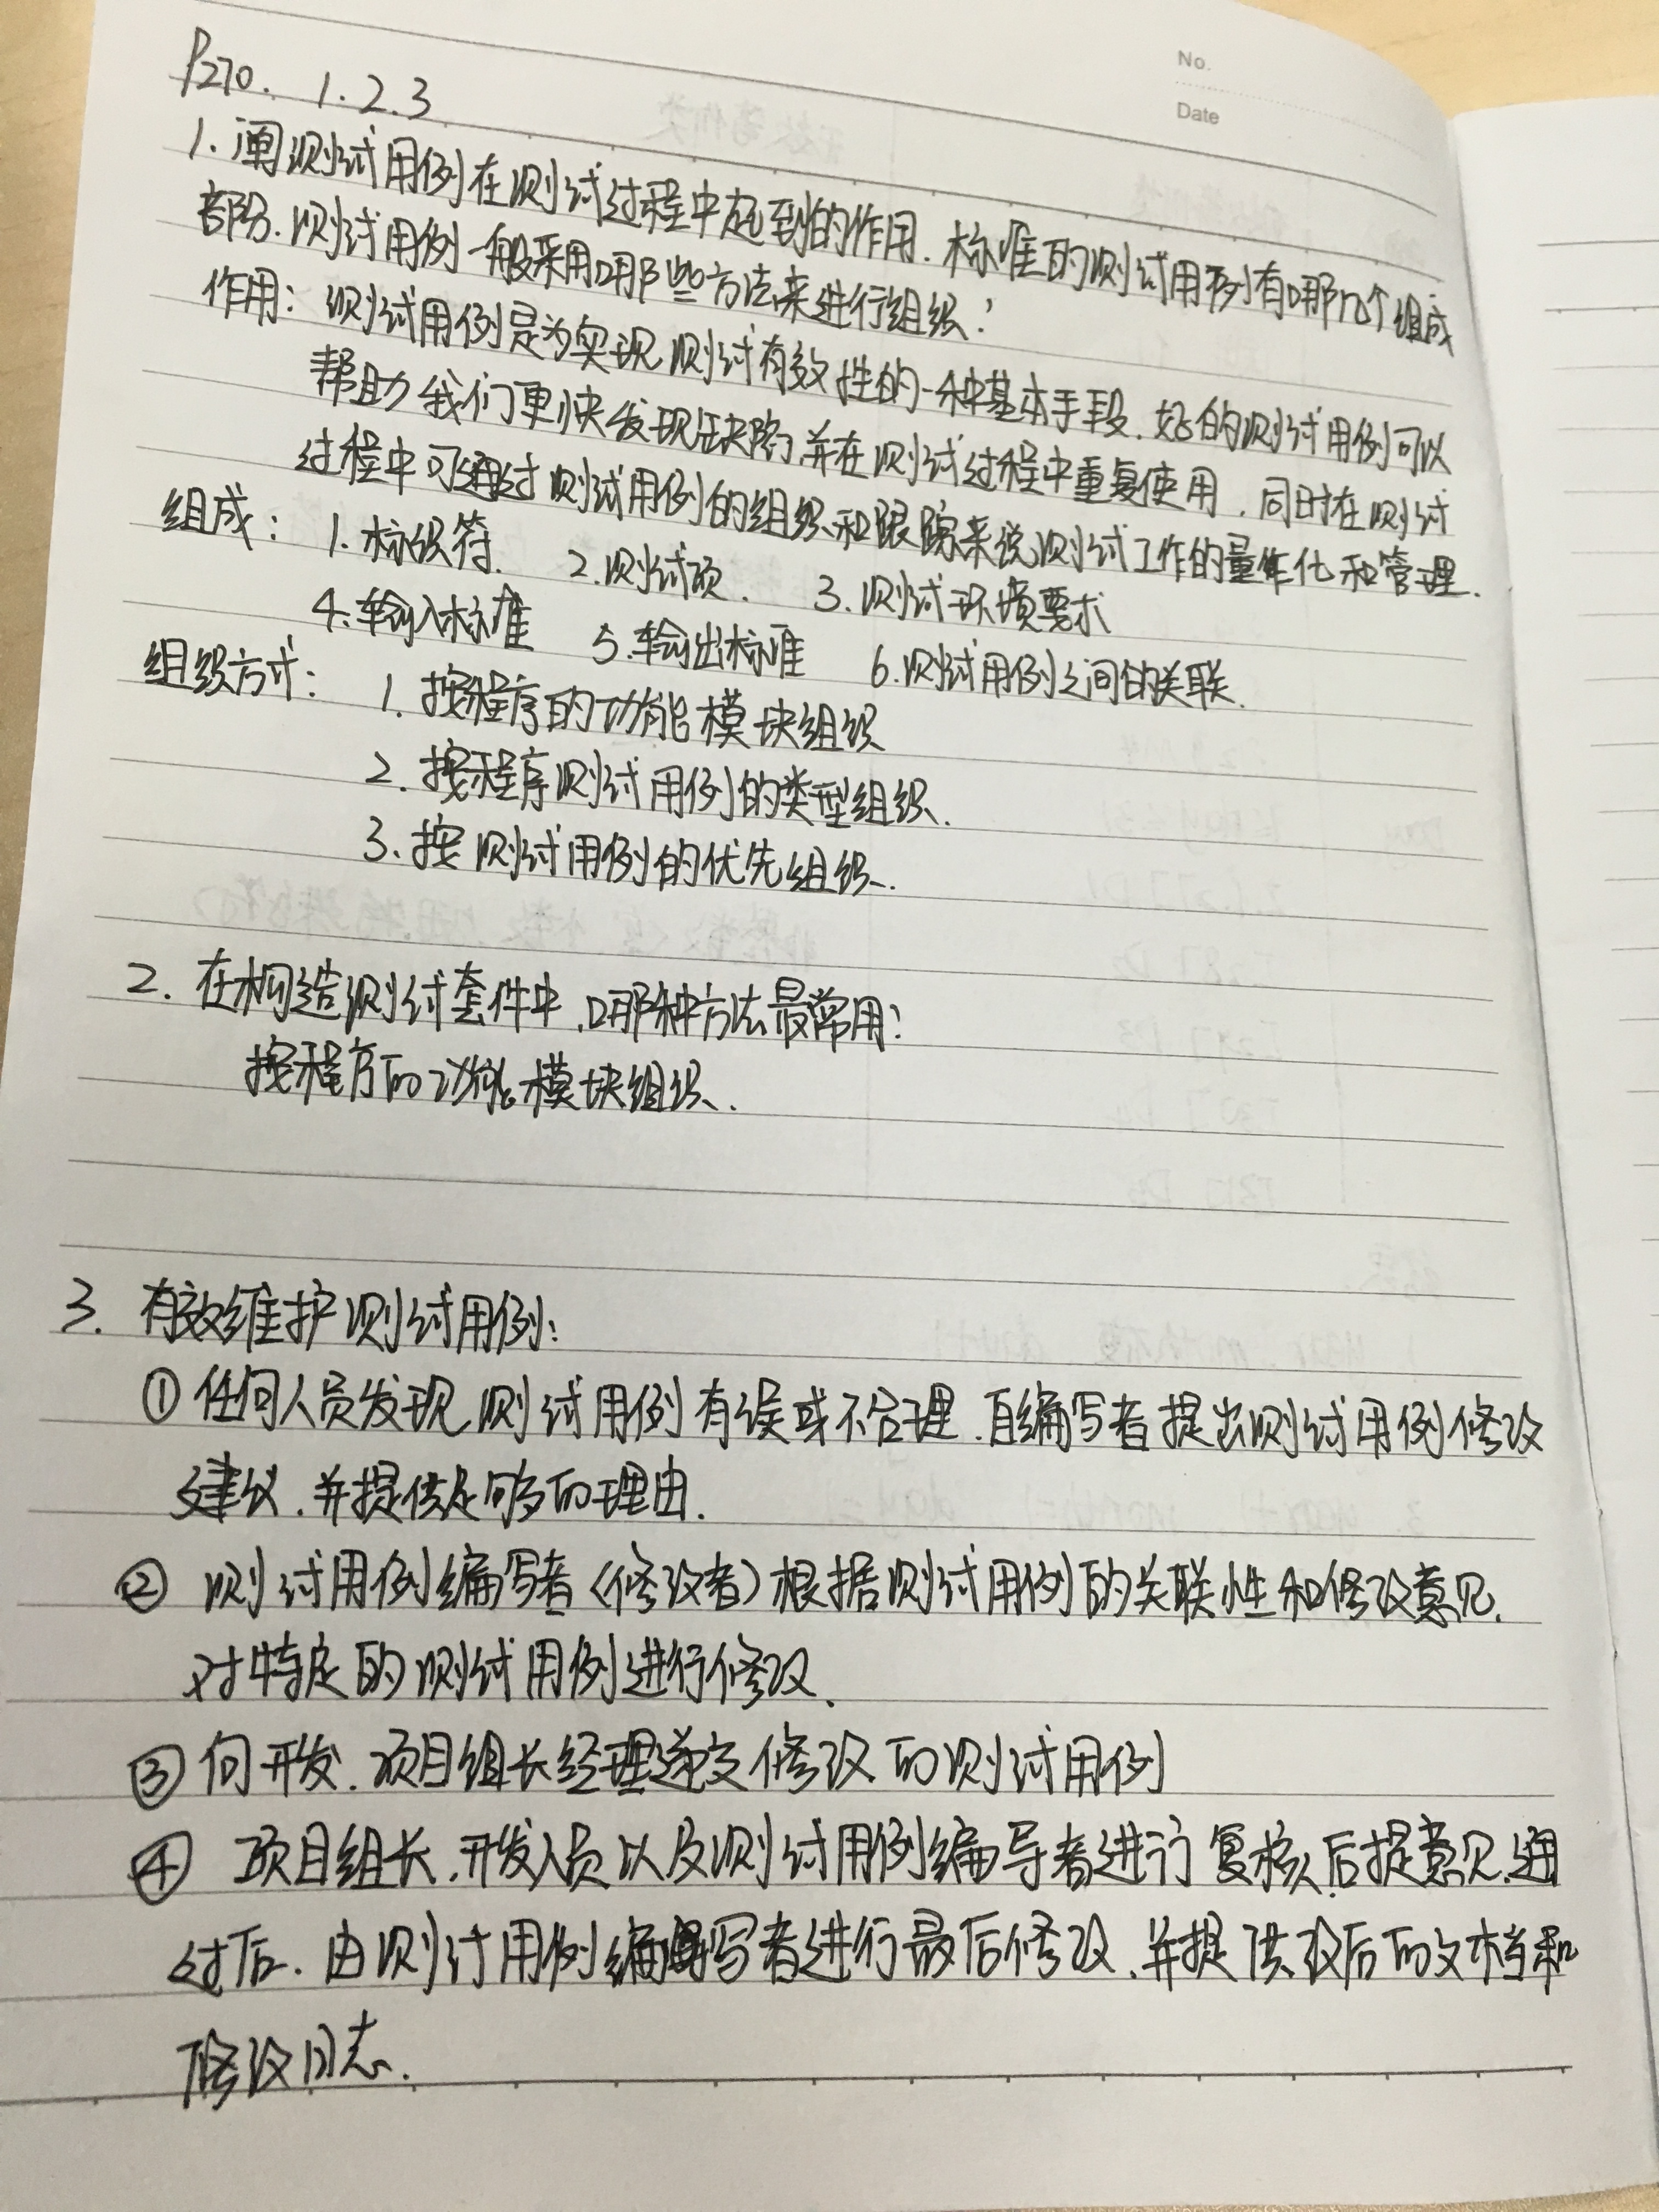 No.
Date
P270. 1.2.3
1. 阐测试用例在测试过程中起到的作用. 标准的测试用例有哪几个组成
部分. 测试用例一般采用哪些方法来进行组织?
作用: 测试用例是为实现测试有效性的一种基本手段. 好的测试用例可以
帮助我们更快发现缺陷,并在测试过程中重复使用. 同时在测试
过程中可通过测试用例的组织和跟踪来说测试工作的量化和管理.
组成: 1. 标织符. 2. 测试项. 3. 测试环境要求
4. 输入标准 5. 输出标准 6. 测试用例之间的关联.
组织方式: 1. 按程序的功能模块组织
2. 按程序测试用例的类型组织.
3. 按测试用例的优先组织.
2. 在构造测试套件中,哪种方法最常用?
按程序的功能模块组织.
3. 有效维护测试用例:
① 任何人员发现测试用例有误或不合理. 编写者提出测试用例修改
建议. 并提供足够的理由.
② 测试用例编写者(修改者)根据测试用例的关联性和修改意见.
对特定的测试用例进行修改.
③ 向开发. 项目组长经理递交修改的测试用例
④ 项目组长.开发人员以及测试用例编导者进行复核后提意见.通
过后. 由测试用例编写者进行最后修改.并提供改后的文档和
修改日志.